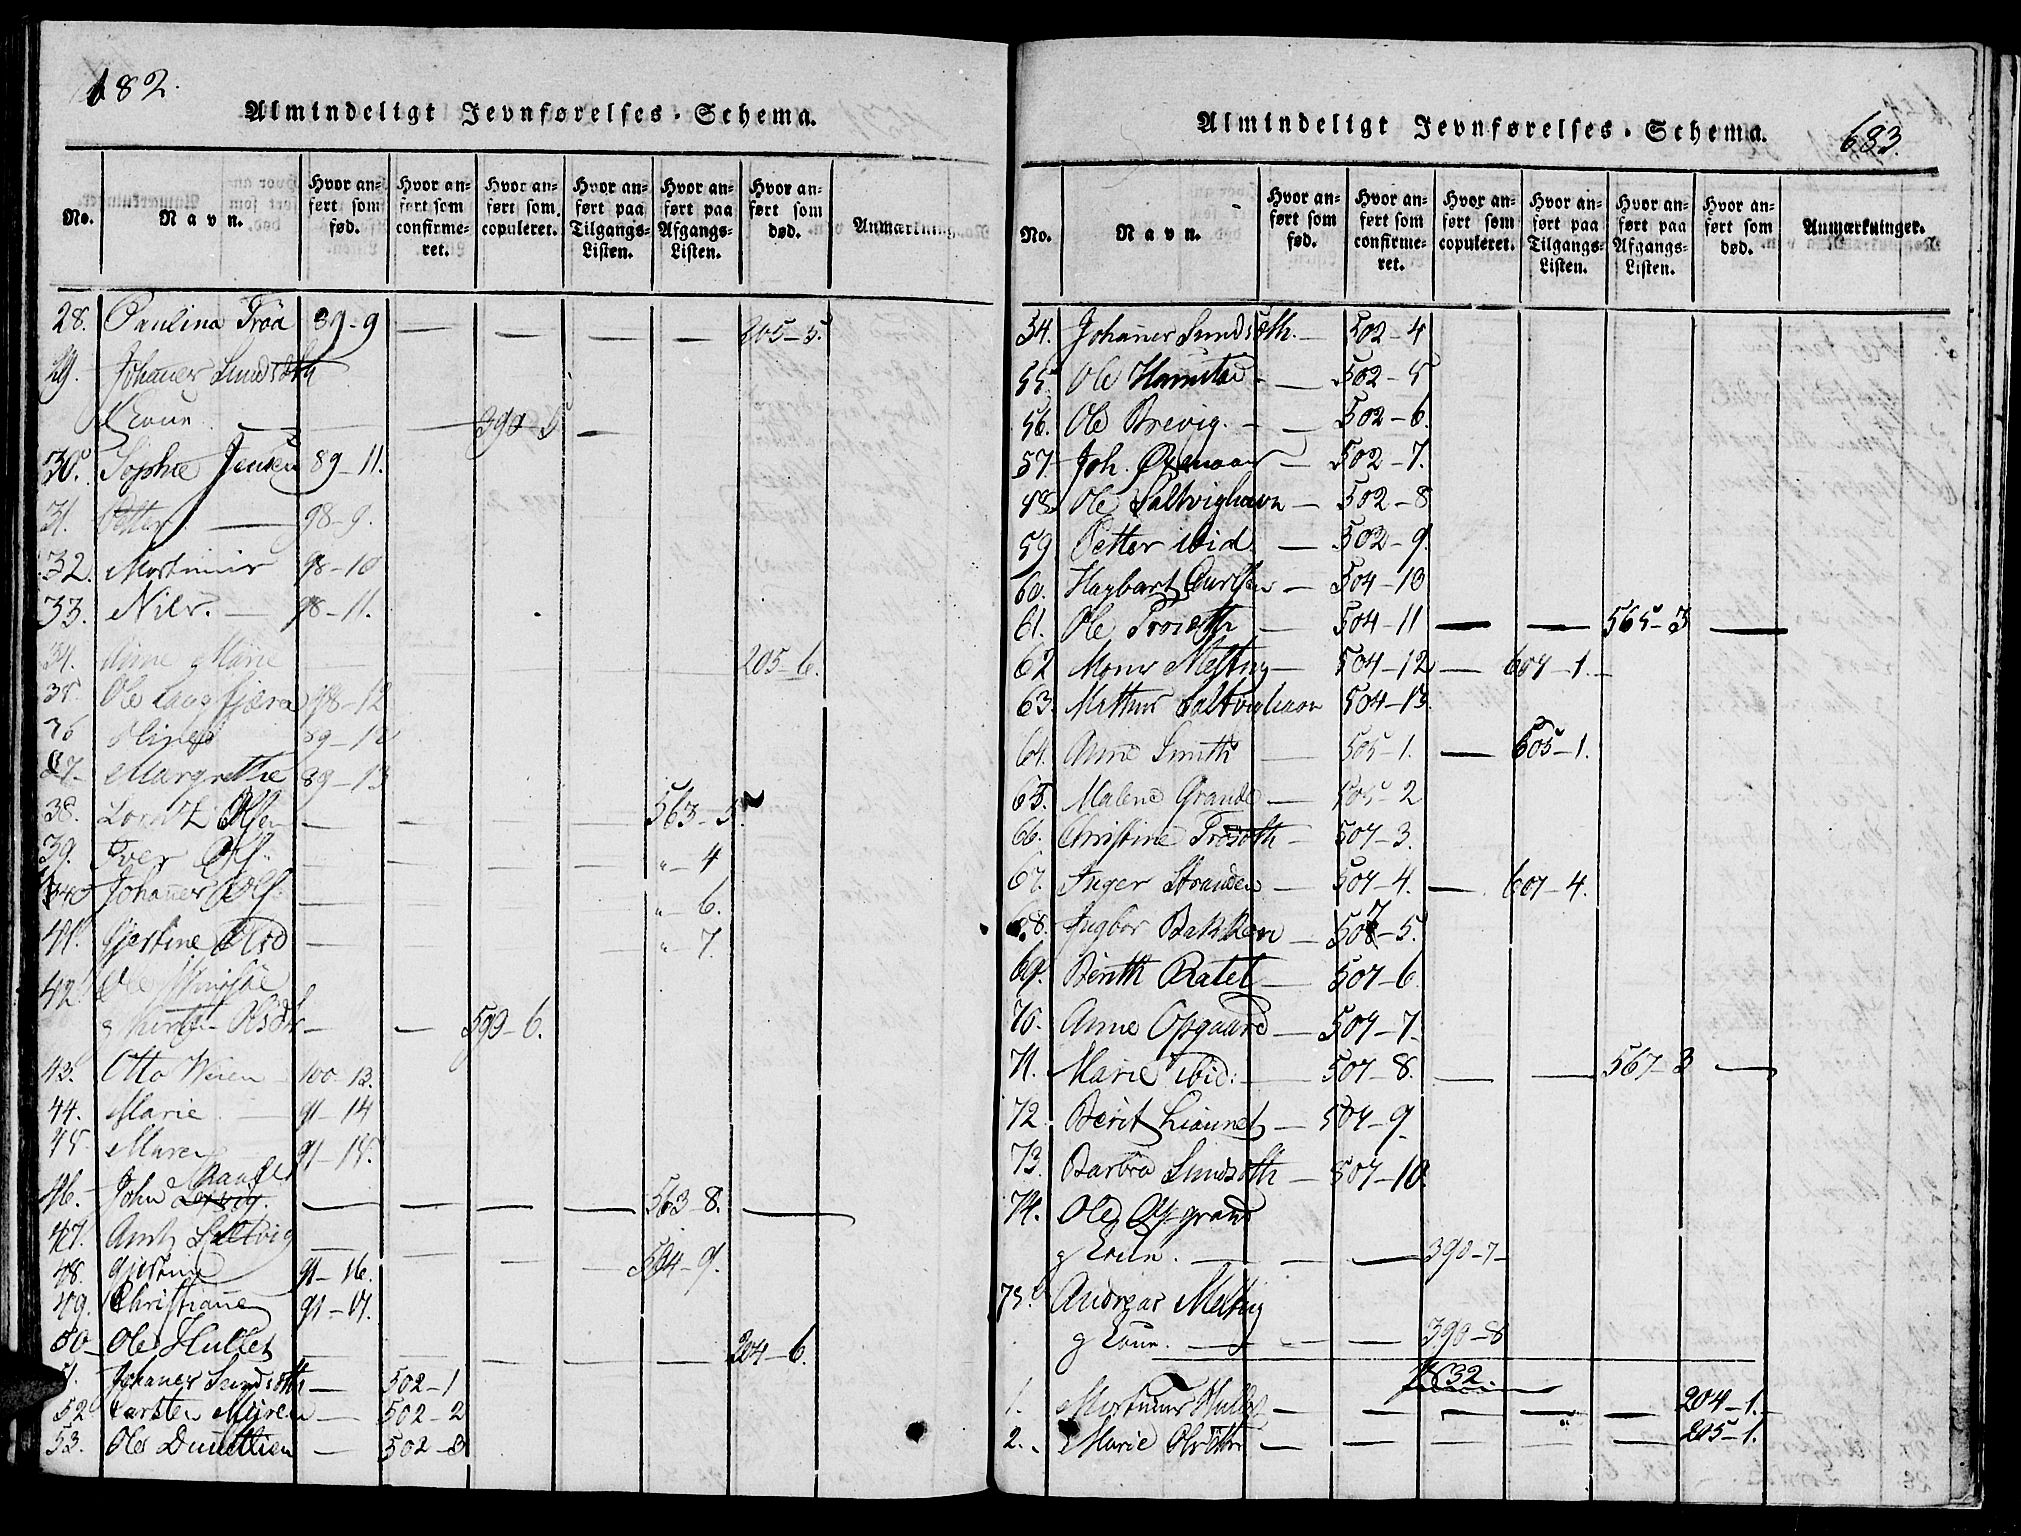 682.
Almindeligt Jevnførelses-Schema.
No. Navn. Hvor anført som fød. Hvor anført som confirmeret. Hvor anført som copuleret. Hvor anført paa Tilgangs-Listen. Hvor anført paa Afgangs-Listen. Hvor anført som død. Anmærkning
28. Paulina Tröa 89-9 — — — — 205-5.
29. Johaner Sundsöth
g Koun. — — 390-5 —
30. Sophie Jensen 89-11.
31. Petter — 98-9.
32. Mortimir 98-10
33. Nils. — 98-11.
34. Anne Marie — 205-6.
35. Ole Langfjæra 98-12
36 Oline 89-12
37. Margrethe 89-13
38. Lorntz Olsen — — — — 563-5.
39. Iver Ols. — — — — " - 4
40 Johaner Ols. — — — — " - 6.
41. Gjertine Olsd — — — — " - 7.
42. Ole
g Olsdr — — 599-6.
43. Otto 100-13.
44. Marie — 91-14
45. Maren 91-15.
46. John — — — — 563-8. —
47. Saltvig — — — — 594-9.
48. Gjertine 91-16.
49. Christiane 91-17.
50 Ole Hullet — — — — — 204-6.
51. Johaner Sundsöth — 502-1
52 Karsten Myren — 502-2
53. Ole — 502-3
683.
Almindeligt Jevnførelses-Schema.
No. Navn. Hvor anført som fød. Hvor anført som confirmeret. Hvor anført som copuleret. Hvor anført paa Tilgangs-Listen. Hvor anført paa Afgangs-Listen. Hvor anført som død. Anmærkninger.
54. Johaner Sundsöth. — 502-4
55. Ole — 502-5
56. Ole Brevig. — 502-6.
57 Joh. — 502-7.
58 Ole Saltvighavn — 502-8
59 Petter ibid. — 502-9.
60. Hagbart — 504-10
61. Ole Troseth — 504-11 — — 565-3 —
62 Mons Melting — 504-12 — 607-1.
63. Mathias Saltvighavn 504-13.
64. Anne Smith — 505-1. — 605-1.
65. Malene Grande — 505-2
66. Christine Trösöth — 507-3.
67. Inger Stranden — 507-4. — 607-4.
68. Ingbor Bakken — 507-5.
69. Berith Ratet — 507-6
70. Anne Opgaard — 507-7.
71. Marie ibid: — 507-8. — — 567-3 —
72. Berit — 507-9
73. Barbra Sundsöth — 507-10.
74. Ole
g Koun. — — 390-7
75. Andreas Melting
g Koun. — — 390-8
1832.
1. Hullet — — — — — 204-1.
2. Marie — — — — — 205-1.